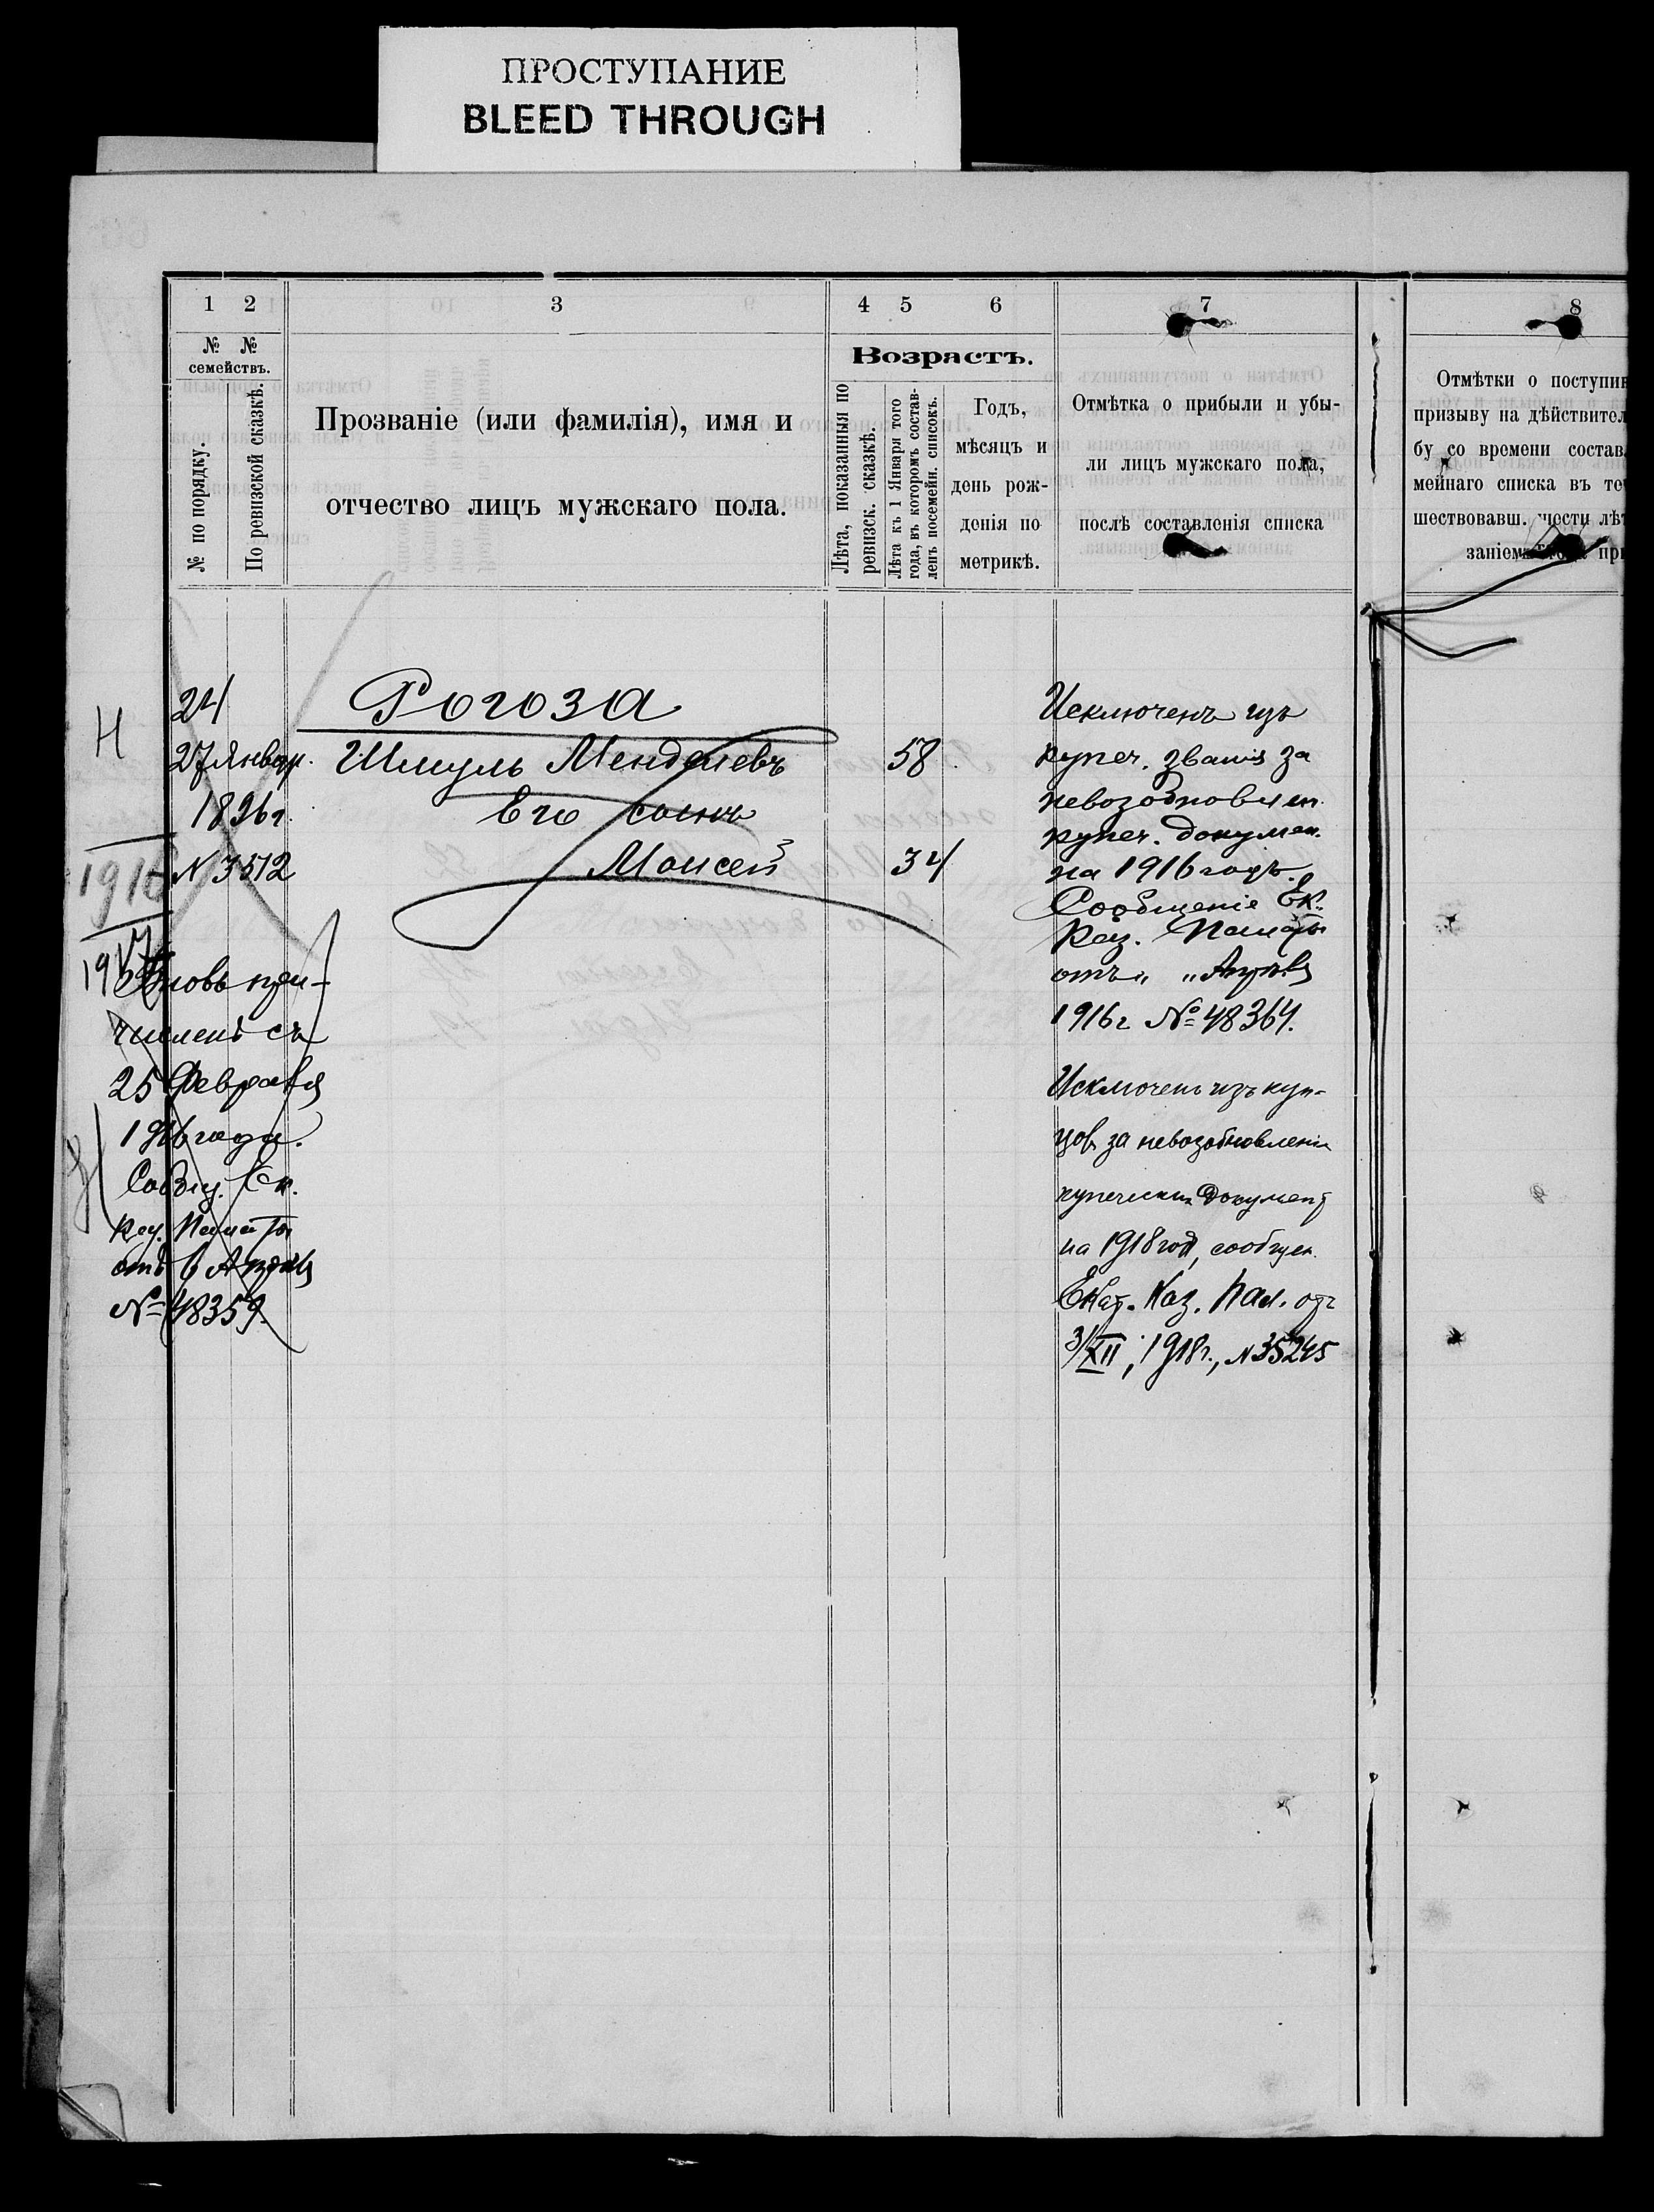 ПРОСТУПАНИЕ
BLEED THROUGH
1 2 3 4 5 6 7 8
№ №
семействъ.
№ по порядку.
По ревизской сказкѣ.
Прозваніе (или фамилія), имя и
отчество лицъ мужскаго пола.
Возрастъ.
Лѣта, показанныя по
ревизск. сказкѣ.
Лѣта къ 1 Января того
года, въ которомъ состав-
ленъ посемейн. списокъ.
Годъ,
мѣсяцъ и
день рож-
денія по
метрикѣ.
Отмѣтка о прибыли и убы-
ли лицъ мужскаго пола,
послѣ составленія списка
Отмѣтки о поступив
призыву на дѣйствител
бу со времени состав
мейнаго списка въ те
шествовавш. шести лѣт
заніем при
Н
24
27 Январ.
1896 г.
N 3512
1916
1917
Вновь при-
численъ съ
25 Февраля
1916 года.
Сообщ. Ек.
Каз. Палаты
отъ 6 Апрѣля
№ 48359.
Рогоза
Шмуль Менделевъ 58
Его сынъ
Моисей 34
Исключенъ изъ
купеч. званія за
невозобновлен.
купеч. докумен.
на 1916 годъ.
Сообщеніе Ек.
Каз. Палаты
отъ „ „ Апрѣля
1916 г № 48364.
Исключенъ изъ куп-
цов за невозобновленіе
купеческих документ
на 1918 год, сообщен.
Екат. Каз. Пал. от
3/XII, 1918 г., N 35245